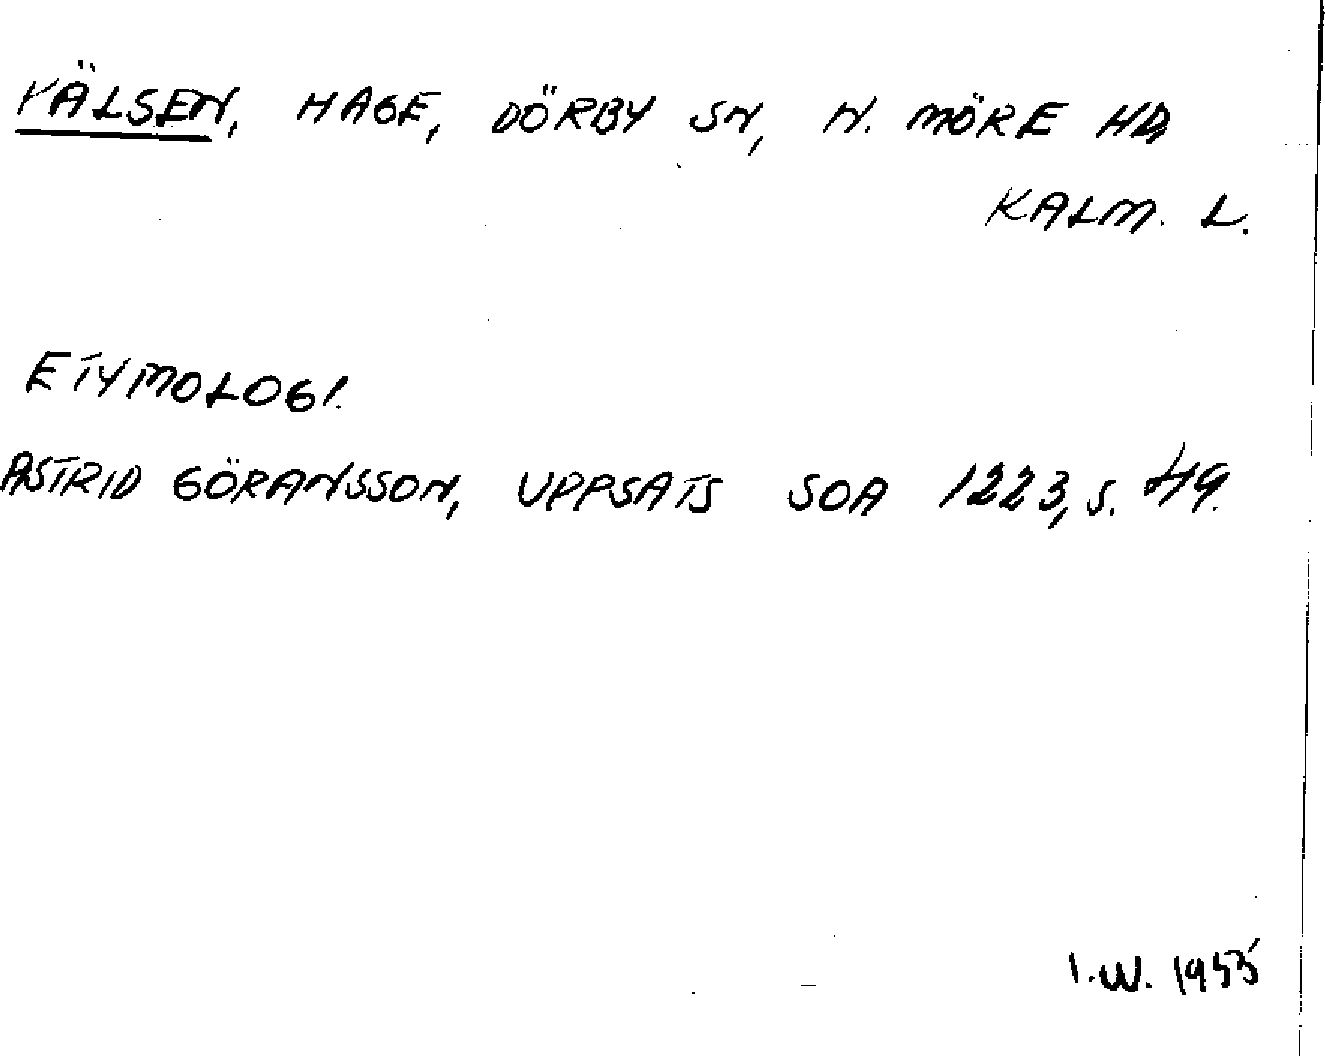 VÄLSEN, HAGE, DÖRBY SN, N. MÖRE HD,
KALM. L.
ETYMOLOGI.
ASTRID GÖRANSSON, UPPSATS SOA 1223, S. 49.
I.W. 1955